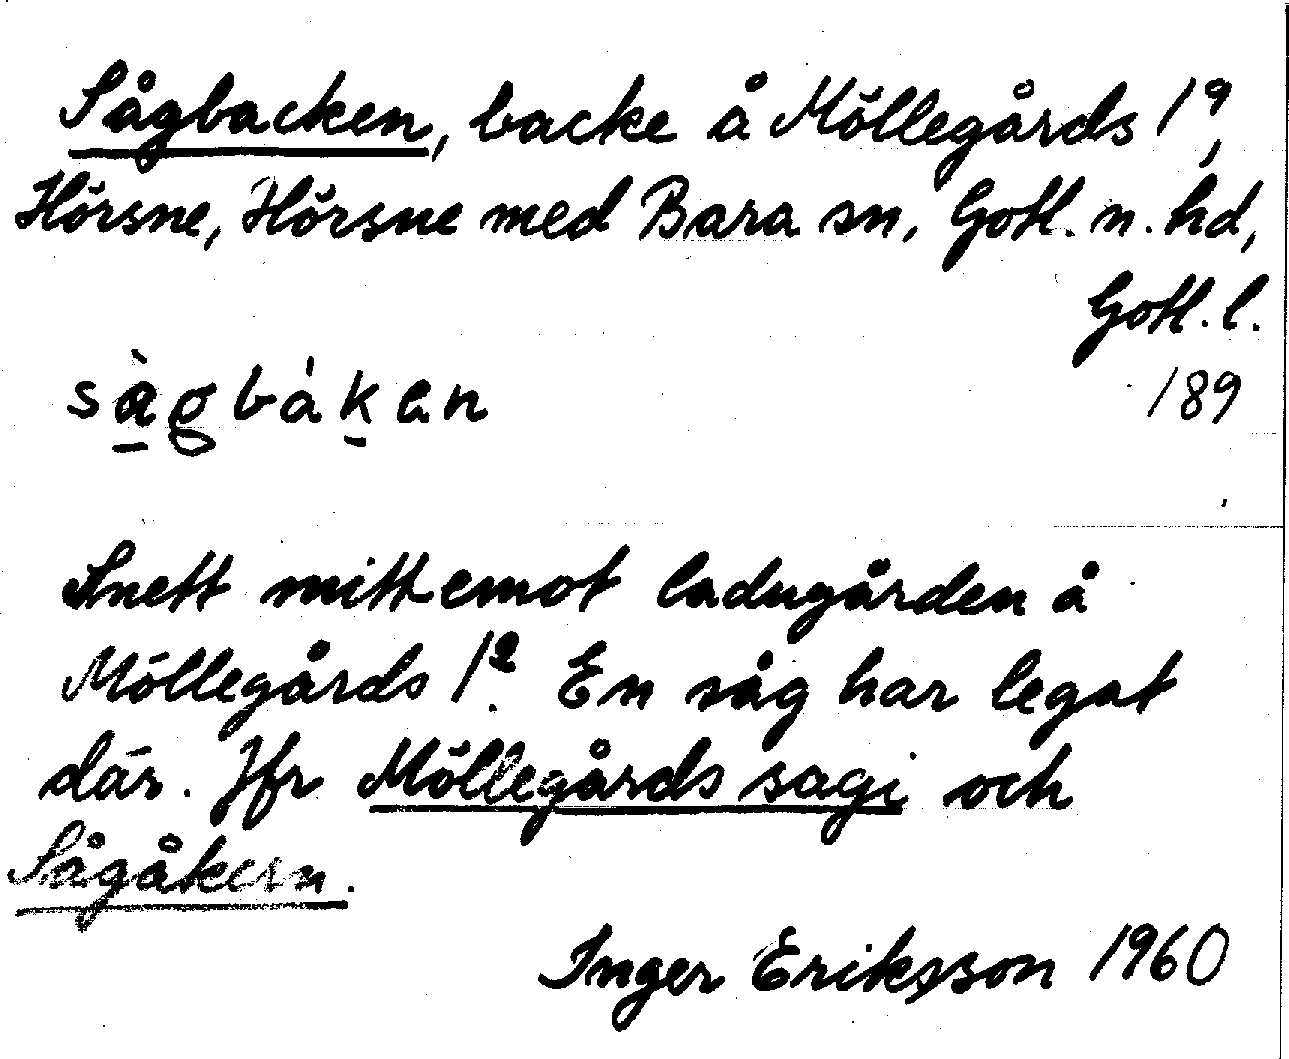 Sågbacken, backe å Möllegårds 1⁹,
Hörsne, Hörsne med Bara sn, Gotl. n. hd,
Gotl. l.
189
sàgbákan
Snett mitt emot ladugården å
Möllegårds 1². En såg har legat
där. Jfr Möllegårds sagi och
Sågåkern.
Inger Eriksson 1960